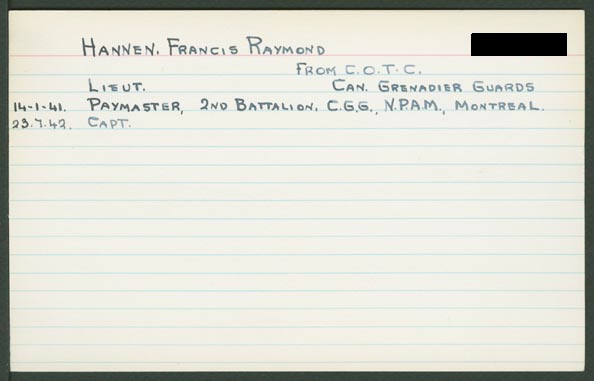 HANNEN, FRANCIS RAYMOND
FROM C.O.T.C.
LIEUT. CAN. GRENADIER GUARDS
14-1-41. PAYMASTER, 2ND BATTALION, C.G.G., N.P.A.M., MONTREAL.
23.7.42. CAPT.